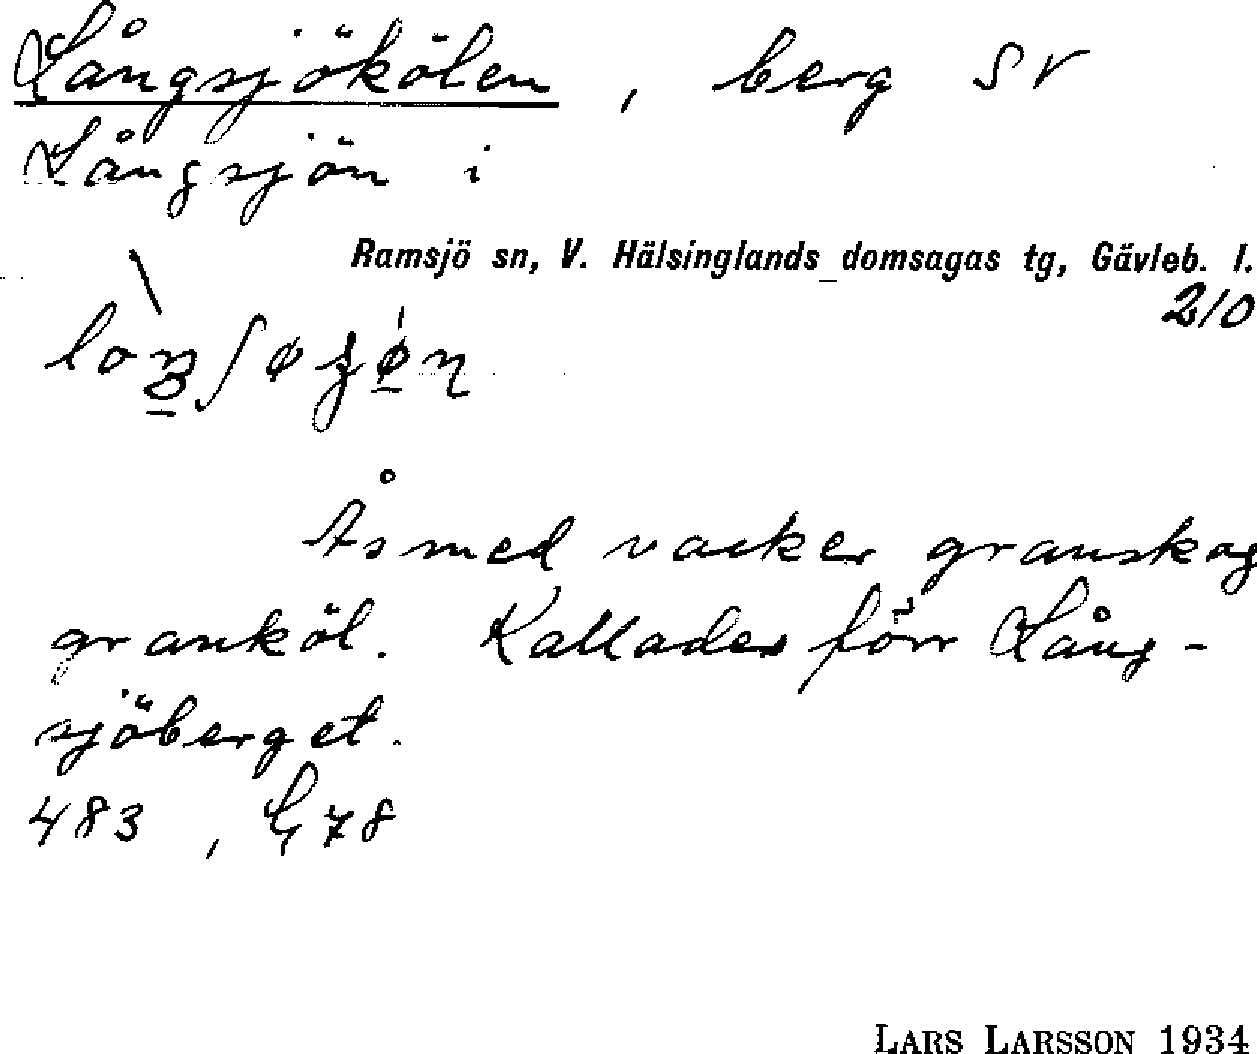 Långsjökölen, berg SV
Långsjön i
Ramsjö sn, V. Hälsinglands domsagas tg, Gävleb. l.
210
Ås med vacker granskog
granköl. Kallades förr Lång-
sjöberget.
483, G 78
LARS LARSSON 1934